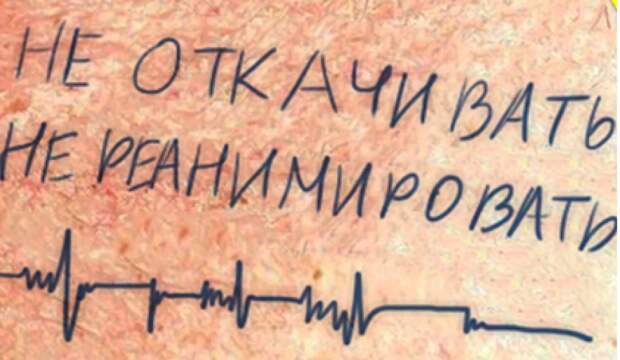 НЕ ОТКАЧИВАТЬ
НЕ РЕАНИМИРОВАТЬ